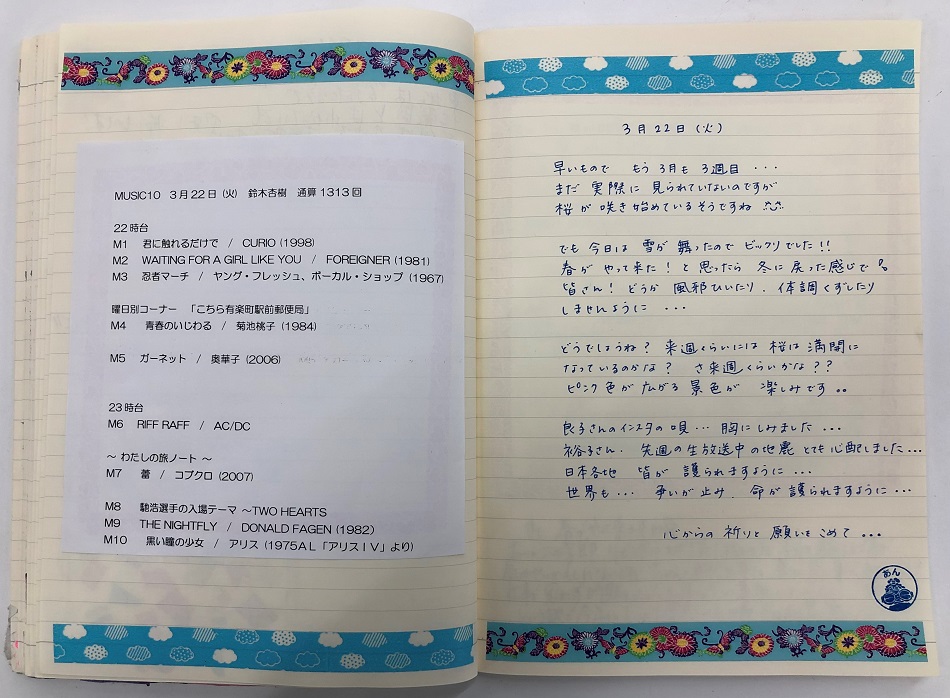 MUSIC10 3月22日(火) 鈴木杏樹 通算1313回
22時台
M1 君に触れるだけで / CURIO (1998)
M2 WAITING FOR A GIRL LIKE YOU / FOREIGNER (1981)
M3 忍者マーチ / ヤング・フレッシュ、ボーカル・ショップ (1967)
曜日別コーナー 「こちら有楽町駅前郵便局」
M4 青春のいじわる / 菊池桃子 (1984)
M5 ガーネット / 奥華子 (2006)
23時台
M6 RIFF RAFF / AC/DC
~ わたしの旅ノート ~
M7 蕾 / コブクロ (2007)
M8 馳浩選手の入場テーマ ~TWO HEARTS
M9 THE NIGHTFLY / DONALD FAGEN (1982)
M10 黒い瞳の少女 / アリス (1975AL「アリスIV」より)
3月22日(火)
早いもので もう3月も3週目・・・
まだ 実際に 見られていないのですが
桜が 咲き始めているそうですね
でも 今日は 雪が 舞ったので ビックリでした!!
春が やって来た!と 思ったら 冬に 戻った感じで
皆さん! どうか 風邪ひいたり、体調くずしたり
しませんように ・・・
どうでしょうね? 来週くらいには 桜は 満開に
なっているのかな? さ来週くらいかな??
ピンク色が 広がる 景色が 楽しみです ..
良子さんのインスタの唄・・・ 胸にしみました・・・
裕子さん、先週の生放送中の地震 とても心配しました・・・
日本各地 皆が 護られますように・・・
世界も・・・ 争いが止み、命が護られますように・・・
心からの 祈りと 願いをこめて・・・
あん